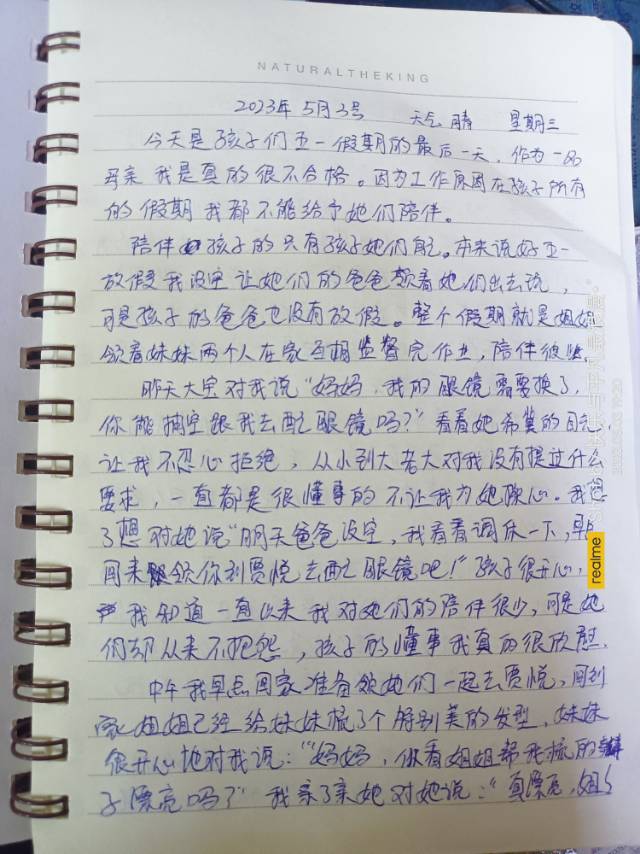 NATURALTHEKING
2023年5月3号 天气晴 星期三
今天是孩子们五一假期的最后一天,作为一名
母亲我是真的很不合格。因为工作原因在孩子所有
的假期我都不能给予她们陪伴。
陪伴孩子的只有孩子她们自己。本来说好五一
放假我没空让她们的爸爸领着她们出去玩,
可是孩子的爸爸也没有放假。整个假期就是姐姐
领着妹妹两个人在家互相监督完作业,陪伴彼此
昨天大宝对我说“妈妈,我的眼镜需要换了,
你能抽空跟我去配眼镜吗?”看着她希冀的目光,
让我不忍心拒绝,从小到大老大对我没有提过什么
要求,一直都是很懂事的不让我为她操心。我想
了想对她说“明天爸爸没空,我看看调休一下,早
回来领你到贾悦去配眼镜吧!”孩子很开心,
我知道一直以来我对她们的陪伴很少,可是她
们却从来不抱怨,孩子的懂事我真的很欣慰.
中午我早点回家准备领她们一起去贾悦,回到
家姐姐已经给妹妹梳了个特别美的发型,妹妹
很开心地对我说:“妈妈,你看姐姐帮我梳的辫
子漂亮吗?”我亲了亲她对她说:“真漂亮,姐
realme